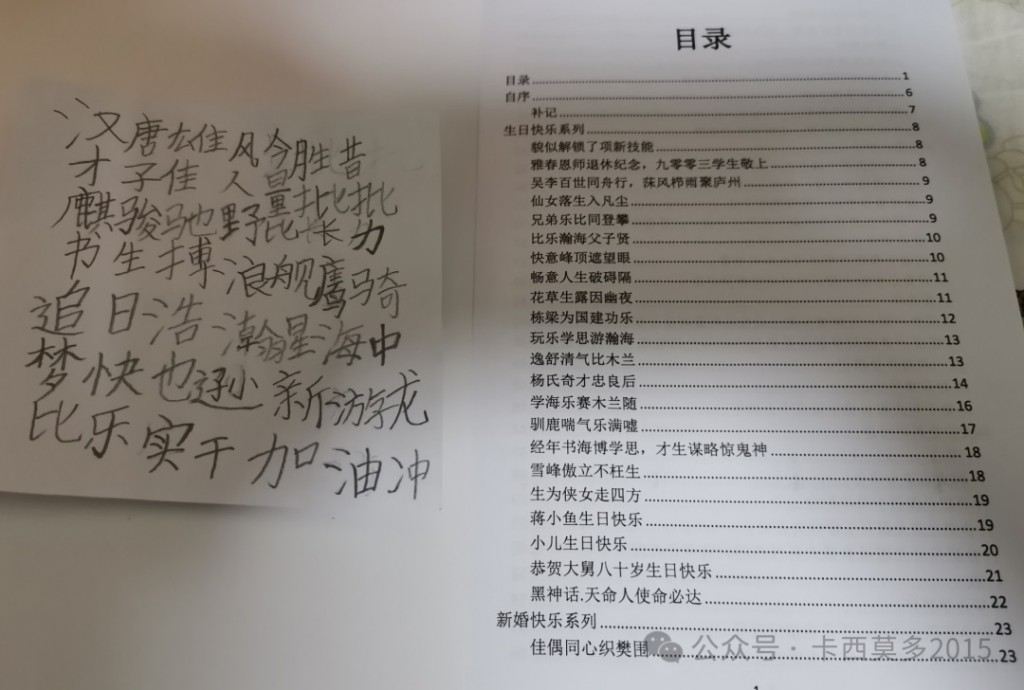 汉唐雄风今胜昔
才子佳人量批批
麒骏驰野昆长势
书生搏浪舰鹰骑
追日浩瀚星海中
梦快也逊新游龙
比乐实干加油冲
目录
目录 1
自序 6
补记 7
生日快乐系列 8
貌似解锁了项新技能 8
雅春恩师退休纪念，九零零三学生敬上 8
吴李百世同舟行，莯风栉雨聚庐州 9
仙女落生入凡尘 9
兄弟乐比同登攀 9
比乐瀚海父子贤 10
快意峰顶遮望眼 10
畅意人生破碍隔 11
花草生露因幽夜 11
栋梁为国建功乐 12
玩乐学思游瀚海 13
逸舒清气比木兰 13
杨氏奇才忠良后 14
学海乐赛木兰随 16
驯鹿喘气乐满嘘 17
经年书海博学思，才生谋略惊鬼神 18
雪峰傲立不枉生 18
生为侠女走四方 19
蒋小鱼生日快乐 19
小儿生日快乐 20
恭贺大舅八十岁生日快乐 21
黑神话.天命人使命必达 22
新婚快乐系列 23
佳偶同心织樊围 23
公众号·卡西莫多2015